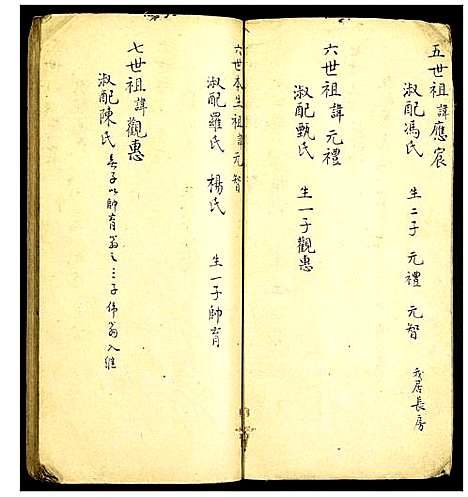 五世祖諱應宸
淑配馮氏 生二子 元禮 元智 我居長房
六世祖諱元禮
淑配甄氏 生一子觀惠
六世本生祖諱元智
淑配羅氏 楊氏 生一子帥育
七世祖諱觀惠
淑配陳氏 無子以帥育翁之三子佈翁入繼